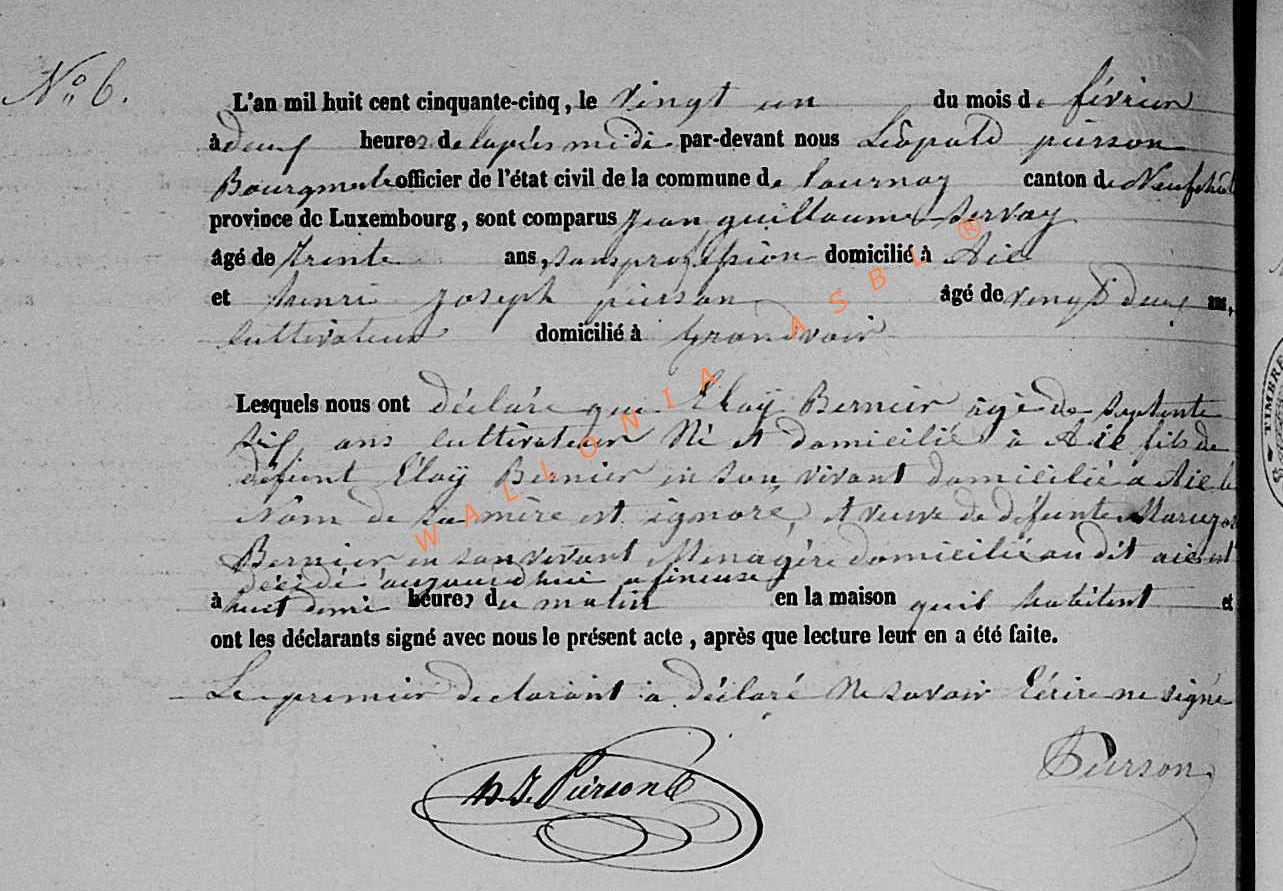 N° 6.
L'an mil huit cent cinquante-cinq, le vingt un du mois de févrieu
à deux heures de laprés midi par-devant nous Léopold pierson
Bourgmetre officier de l'état civil de la commune de tournay canton de Neufchat
province de Luxembourg, sont comparus Jean guillaume Servay
âgé de trente ans, sans profession domicilié à Aie
et henri joseph pierson âgé de vingt deux ans,
Cultivateur domicilié à grandvoir
Lesquels nous ont déclaré que Eloÿ Bernier agé de septente
ans cultivateur Né et domicilié à Aie fils de
défunt Eloÿ Bernier en son vivant domicilié à Aie le
Nom de sa mère est ignoré, et veuve de défunte
Bernier en son vivant Menagère domicilié au dit aie est
décédé aujourdhui
à huit demi heures du matin en la maison quil habitent et
ont les déclarants signé avec nous le présent acte, après que lecture leur en a été faite.
Le premier declarant a déclaré Ne savoir Ecrire ne signé
H. J. Pierson Pierson
TIMBRE
WALLONIA ASBL ®